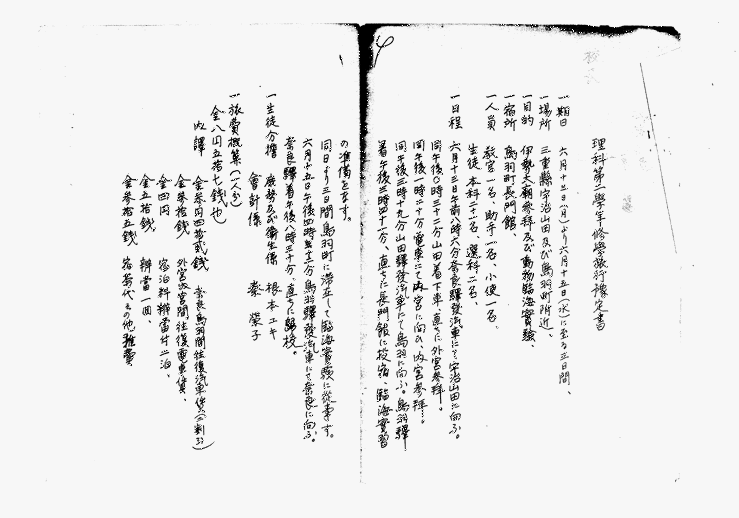 理科第二學年修學旅行豫定書
一期日 六月十三日(月)より六月十五日(水)に至る三日間、
一場所 三重縣宇治山田及び鳥羽町附近、
一目的 伊勢大廟參拜及び動物臨海實驗、
一宿所 鳥羽町長門館、
一人員 教官一名、助手一名、小使一名、
生徒 本科二十一名、選科二名、
一日程 六月十三日午前八時六分奈良驛發汽車にて宇治山田に向ふ。
同午後〇時三十二分山田着下車、直ちに外宮參拜。
同午後一時二十分電車にて内宮に向ひ、内宮參拜。
同午後三時十九分山田驛發汽車にて鳥羽に向ふ。鳥羽驛
着午後三時四十一分、直ちに長門館に投宿、臨海實習
の準備をなす。
同日より三日間鳥羽町に滯在して臨海實驗に從事す。
六月十五日午後四時五十二分鳥羽驛發汽車にて奈良に向ふ。
奈良驛着午後八時三十分、直ちに歸校。
一生徒分擔 庶務及び衞生係 根本ユキ
會計係 秦榮子
一旅費概算(一人分)
金八円五拾七錢也
内譯 金參円四拾貳錢 奈良鳥羽間往復汽車賃(二割引)
金參拾錢 外宮内宮間往復電車賃、
金四円 宿泊料辨當付二泊、
金五拾錢 辨當一回、
金參拾五錢 宿茶代その他雜費